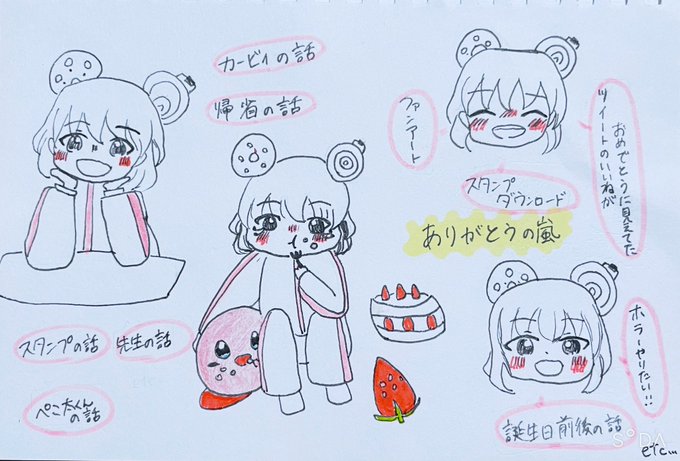 カービィの話
帰省の話
ファンアート
スタンプ
ダウンロード
おめでとうに見えてた
ツイートのいいねが
ありがとうの嵐
スタンプの話
先生の話
ぺこ太くん
の話
ホラーやりたい!!
誕生日前後の話
SODA
etc...